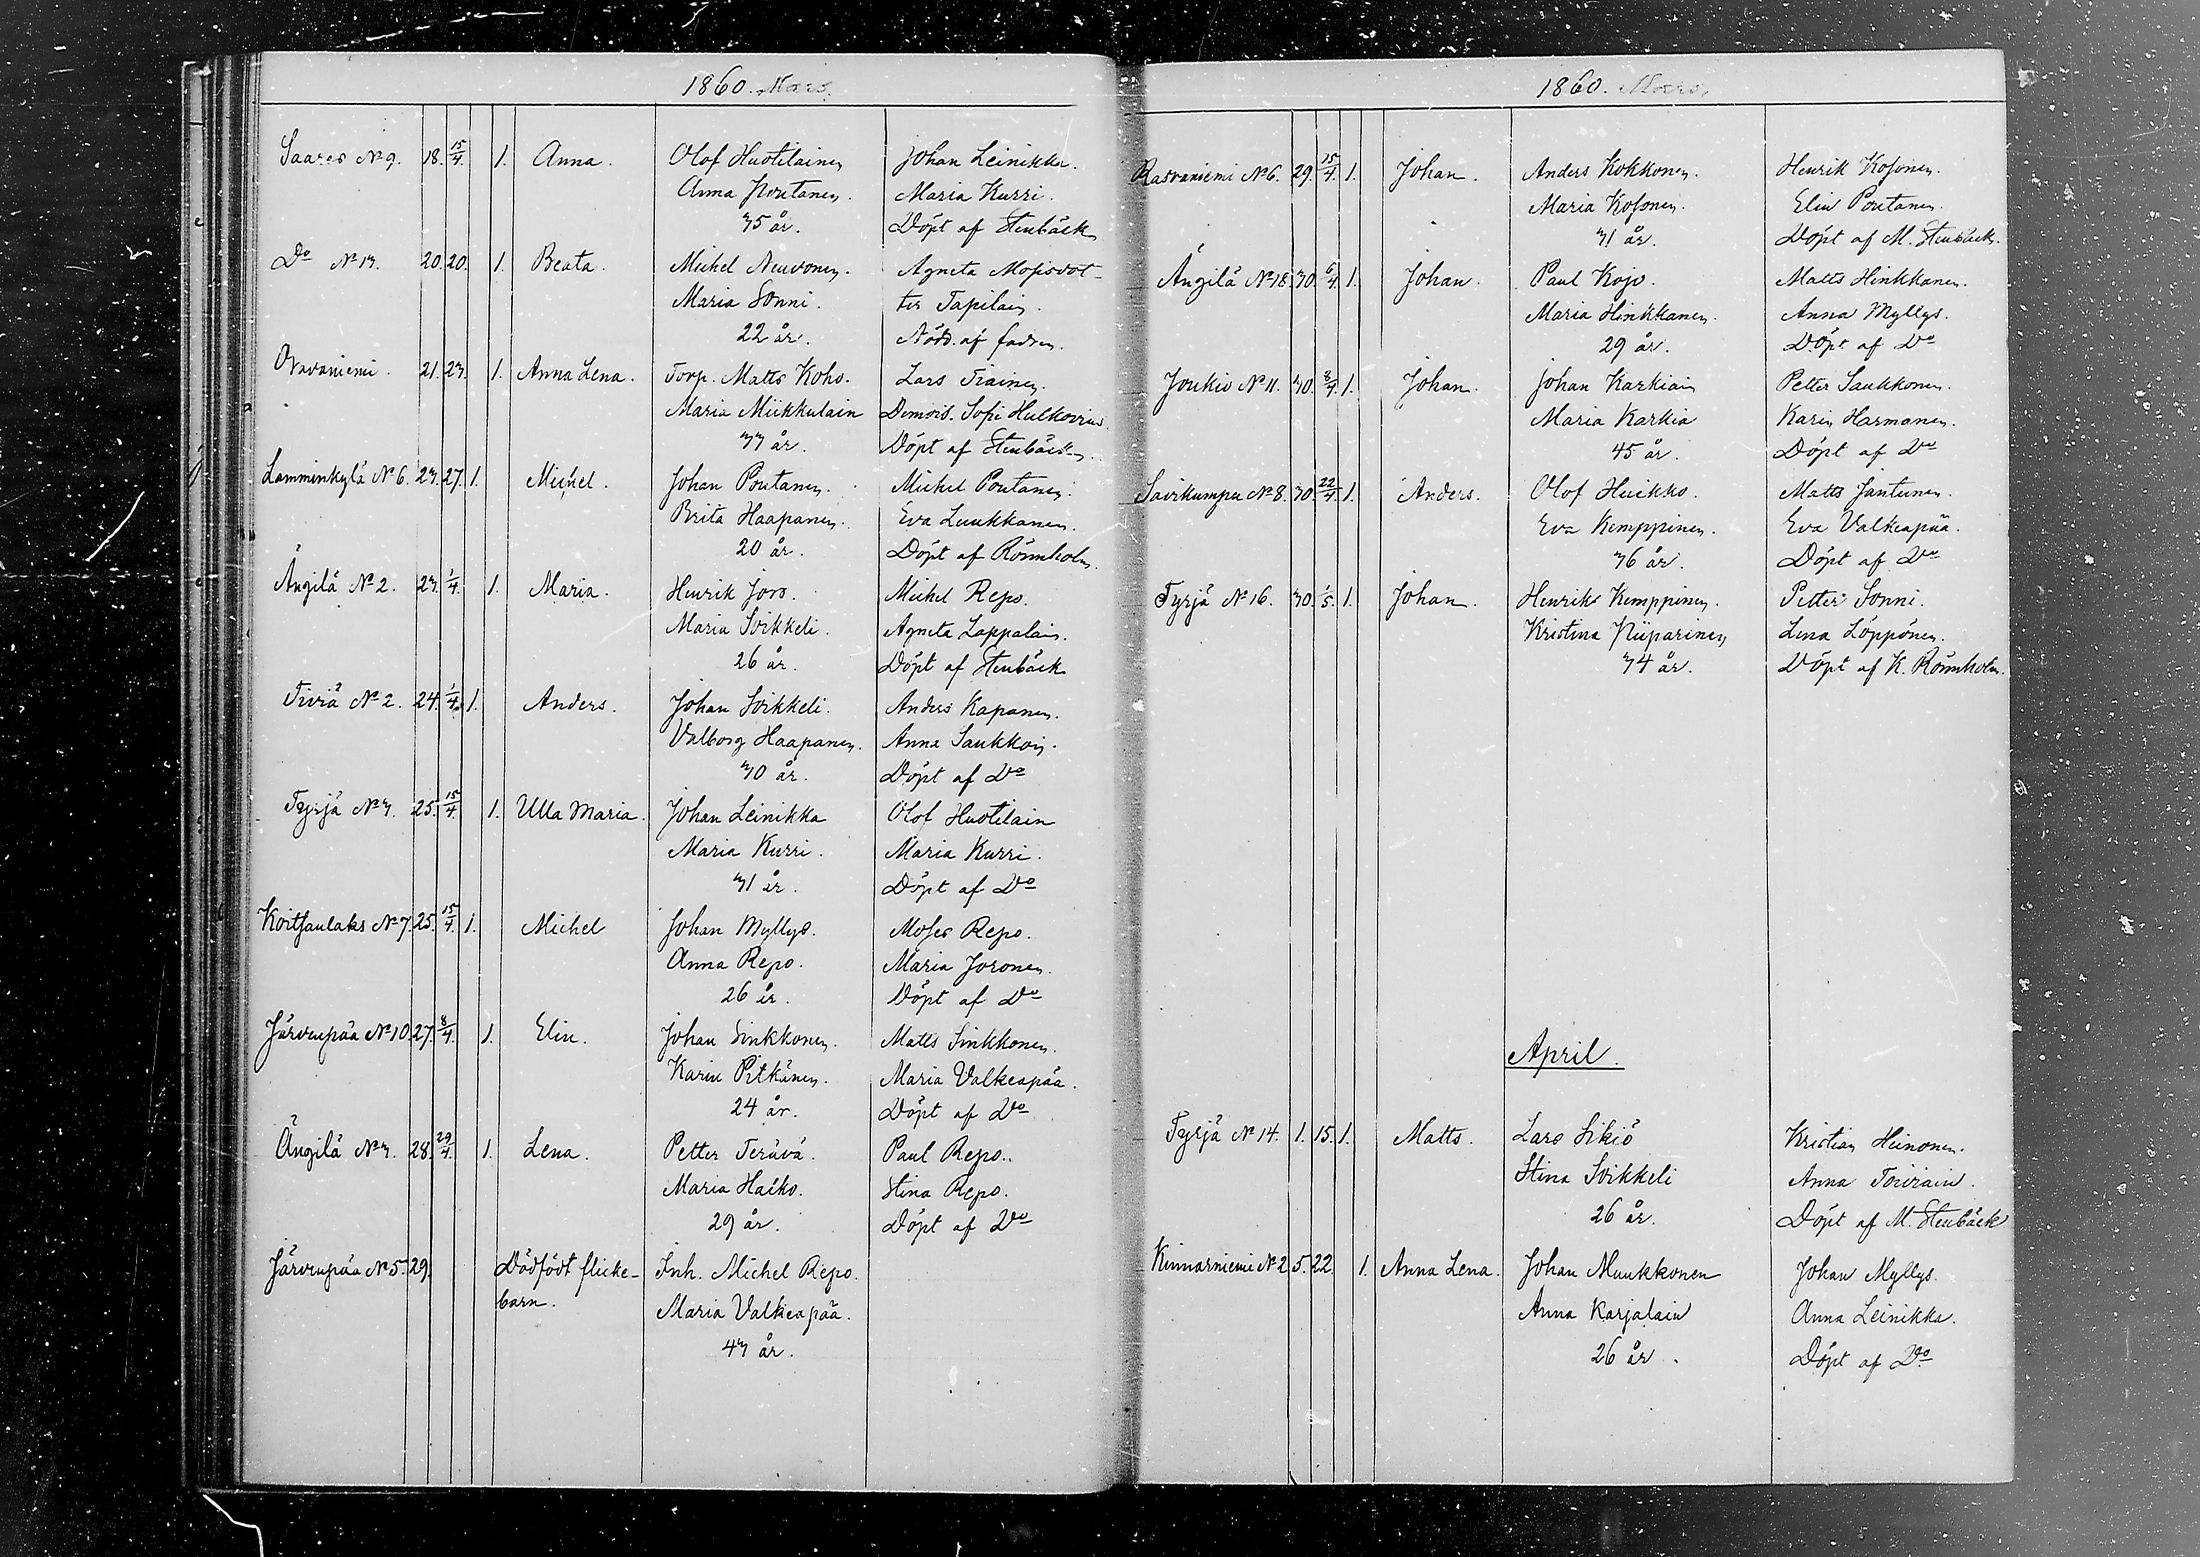 1860. Mars.
Saares No 9. 18. 15/4. 1. Anna. Olof Huotilainen Johan Leinikka.
Anna Poutanen. Maria Kurri.
35 år. Döpt af Stenbäck
Do No 13. 20. 20. 1. Beata. Michel Neuvonen. Agneta Mosisdot-
Maria Sonni. ter Tapilain.
22 år. Nödd. af fadren.
Oravaniemi. 21. 23. 1. Anna Lena. Torp. Matts Koho. Lars Tiainen.
Maria Miikkulain Demois. Sofi Hulkovius.
33 år. Döpt af Stenbäck.
Lamminkylä No 6. 23. 27. 1. Michel. Johan Poutanen. Michel Poutanen.
Brita Haapanen. Eva Luukkanen.
20 år. Döpt af Rönnholm.
Ängilä No 2. 23. 1/4. 1. Maria. Henrik Joro. Michel Repo.
Maria Soikkeli. Agneta Lappalain.
26 år. Döpt af Stenbäck
Tiviä No 2. 24. 1/4. 1. Anders. Johan Soikkeli. Anders Kapanen.
Valborg Haapanen. Anna Saukkoin.
30 år. Döpt af Do
Tyrjä No 3. 25. 15/4. 1. Ulla Maria. Johan Leinikka Olof Huotilain
Maria Kurri. Maria Kurri.
31 år. Döpt af Do
Koitsanlaks No 7. 25. 15/4. 1. Michel Johan Myllys. Moses Repo.
Anna Repo. Maria Joronen.
26 år. Döpt af Do
Järvenpää No 10. 27. 8/4. 1. Elin. Johan Sinkkonen. Matts Sinkkonen.
Karin Pitkänen. Maria Valkeapää.
24 år. Döpt af Do
Ängilä No 3. 28. 29/4. 1. Lena. Petter Terävä. Paul Repo.
Maria Haiko. Stina Repo.
29 år. Döpt af Do
Järvenpää No 5. 29. Dödfödt flicke- Inh. Michel Repo.
barn. Maria Valkeapää.
43 år.
1860. Mars.
Rasvaniemi No 6. 29. 15/4. 1. Johan. Anders Kokkonen. Henrik Kosonen.
Maria Kosonen. Elin Poutanen.
31 år. Döpt af M. Stenbäck.
Ängilä No 18. 30. 6/4. 1. Johan. Paul Kojo. Matts Hinkkanen.
Maria Hinkkanen. Anna Myllys.
29 år. Döpt af Do
Joukio No 11. 30. 8/4. 1. Johan. Johan Karkiain Petter Saukkonen.
Maria Karkia Karin Harmonen.
45 år. Döpt af Do
Savikumpu No 8. 30. 22/4. 1. Anders. Olof Huikko. Matts Jantunen.
Eva Kemppinen. Eva Valkeapää.
36 år. Döpt af Do
Tyrjä No 16. 30. 1/5. 1. Johan. Henriks Kemppinen. Petter Sonni.
Kristina Piiparinen Lena Löppönen.
34 år. Döpt af K. Rönnholm.
April.
Tyrjä No 14. 1. 15. 1. Matts. Lars Sikiö Kristian Heinonen.
Stina Soikkeli Anna Toivain.
26 år. Döpt af M. Stenbäck
Kinnarniemi No 2 5. 22. 1. Anna Lena. Johan Muukkonen Johan Myllys.
Anna Karjalain Anna Leinikka.
26 år. Döpt af Do